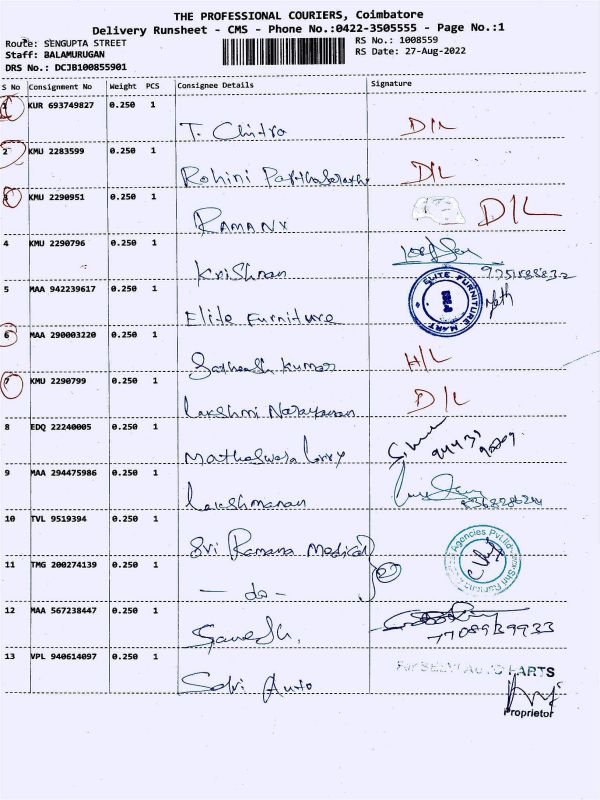 THE PROFESSIONAL COURIERS, Coimbatore
Delivery Runsheet - CMS - Phone No.:0422-3505555 - Page No.:1
Route: SENGUPTA STREET
RS No.: 1008559
Staff: BALAMURUGAN
RS Date: 27-Aug-2022
DRS No.: DCJB100855901
S No Consignment No Weight PCS Consignee Details Signature
1 KUR 693749827 0.250 1
T. Chitra D/L
2 KMU 2283599 0.250 1
Rohini Parthasarathy D/L
3 KMU 2290951 0.250 1
D/L
4 KMU 2290796 0.250 1
Krishnan
5 MAA 942239617 0.250 1
Elite Furniture ELITE FURNITURE MART
6 MAA 290003220 0.250 1
Satheesh Kumar H/L
7 KMU 2290799 0.250 1
Lakshmi Narayanan D/L
8 EDQ 22240005 0.250 1
9 MAA 294475986 0.250 1
Lakshmanan
10 TVL 9519394 0.250 1
Sri Ramana Medical Agencies Pvt.Ltd
11 TMG 200274139 0.250 1
- do -
12 MAA 567238447 0.250 1
Ganesh. 7708939933
13 VPL 940614097 0.250 1
For SELVI AUTO PARTS
Selvi Auto
Proprietor